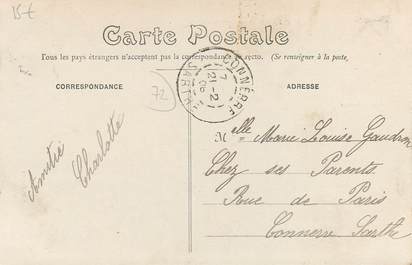 15€
Carte Postale
Tous les pays étrangers n'acceptent pas la correspondance au recto. (Se renseigner à la poste)
CORRESPONDANCE
ADRESSE
72
CONNERRÉ
7
21-2
06
SARTHE
Amitié
Charlotte
Melle Marie Louise Gaudron
Chez ses Parents
Rue de Paris
Connerre Sarthe